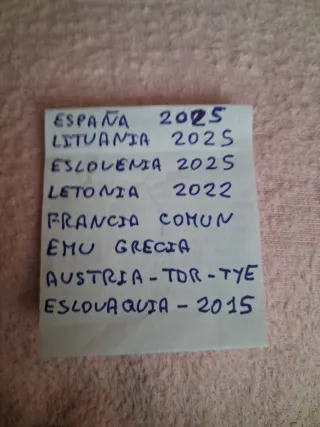 ESPAÑA 2025
LITUANIA 2025
ESLOVENIA 2025
LETONIA 2022
FRANCIA COMUN
EMU GRECIA
AUSTRIA-TDR-TYE
ESLOVAQUIA-2015